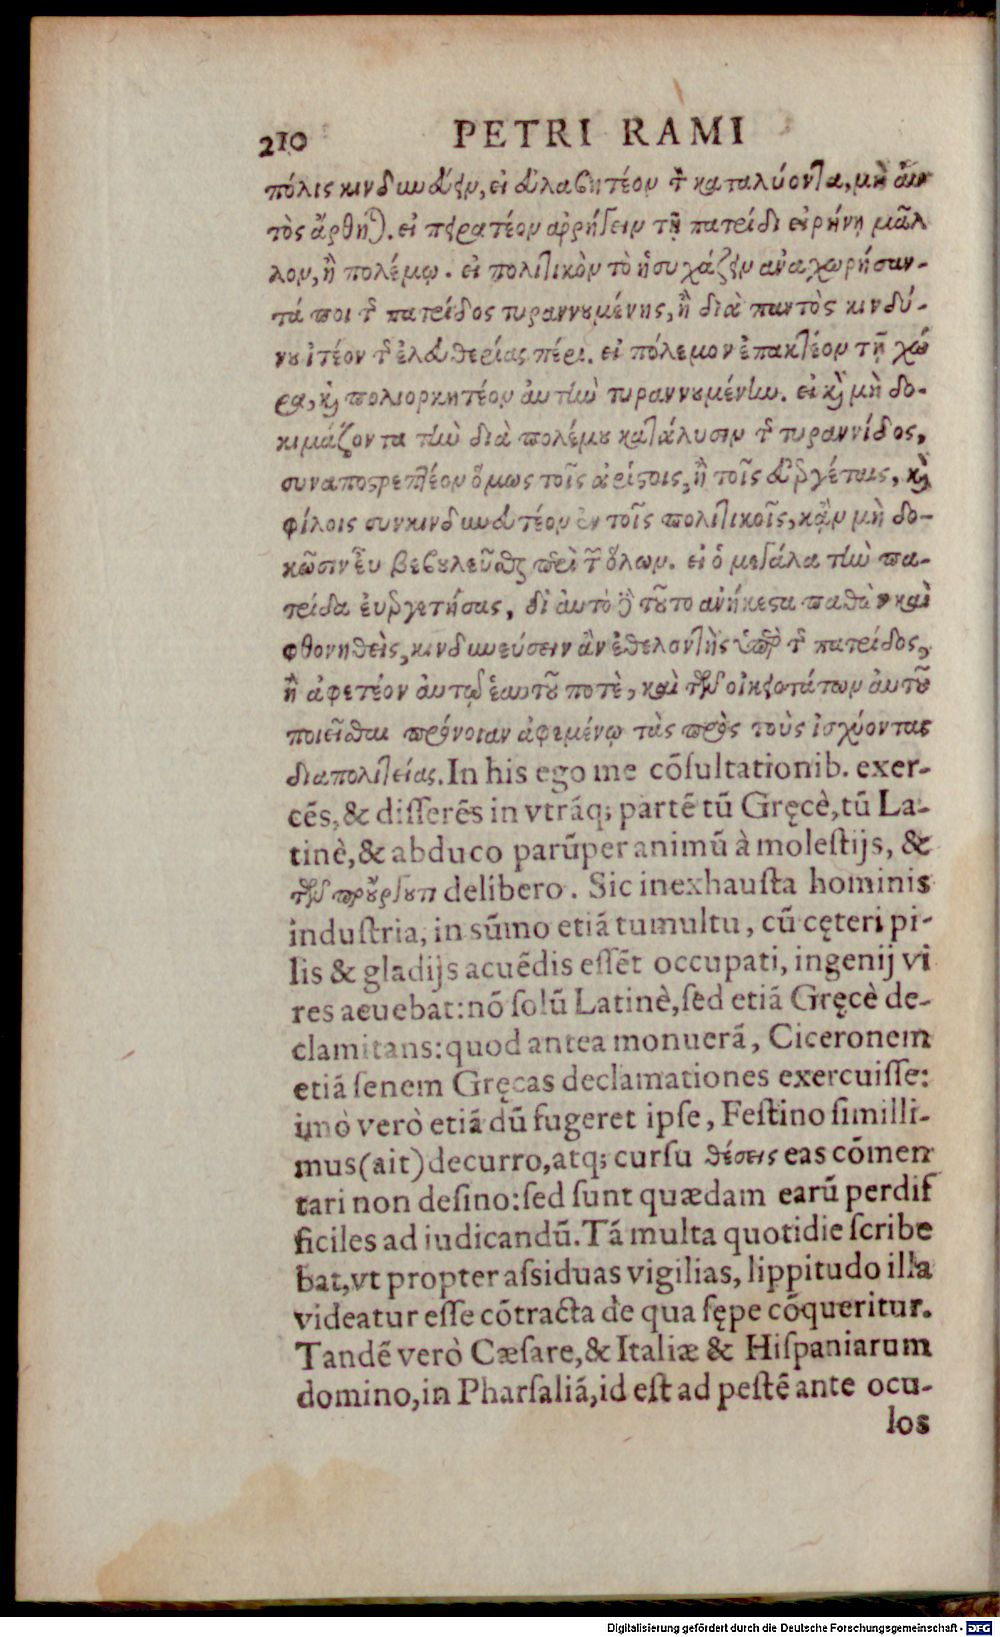 210 PETRI RAMI
πόλις κινδυνεύειν, εἰ εὐλαβητέον τὸν καταλύοντα, μὴ αὐ
τὸς ἄρθηται. εἰ πειρατέον ἀρρήγειν τῇ πατρίδι εἰρήνῃ μᾶλ
λον, ἢ πολέμῳ. εἰ πολιτικὸν τὸ ἡσυχάζειν ἀναχωρήσαν-
τά ποι τῆς πατρίδος τυραννουμένης, ἢ διὰ παντὸς κινδύ-
νου ἰτέον τῆς ἐλευθερίας πέρι. εἰ πόλεμον ἐπακτέον τῇ χώ
ρᾳ, καὶ πολιορκητέον αὐτὴν τυραννουμένην. εἰ καὶ μὴ δο-
κιμάζοντα τὴν διὰ πολέμου κατάλυσιν τῆς τυραννίδος,
συναπογραπτέον ὅμως τοῖς ἀρίστοις, ἢ τοῖς εὐεργέταις, καὶ
φίλοις συνκινδυνευτέον ἐν τοῖς πολιτικοῖς, κἂν μὴ δο-
κῶσιν εὖ βεβουλεῦσθαι περὶ τῶν ὅλων. εἰ ὁ μεγάλα τὴν πα-
τρίδα εὐεργετήσας, δι αὐτό γε τοῦτο ἀνήκεστα παθὼν καὶ
φθονηθεὶς, κινδυνεύσειεν ἂν ἐθελοντὴς ὑπὲρ τῆς πατρίδος,
ἢ ἀφετέον αὐτῷ ἑαυτοῦ ποτὲ, καὶ τῶν οἰκειοτάτων αὐτοῦ
ποιεῖσθαι πρόνοιαν ἀφεμένῳ τὰς πρὸς τοὺς ἰσχύοντας
διαπολιτείας. In his ego me cōſultationib. exer-
cēs, & diſſerēs in vtrāq; partē tū Gręcè, tū La-
tinè, & abduco parūper animū à moleſtijs, &
τῶν προὔργου τι delibero. Sic inexhauſta hominis
induſtria, in sūmo etiā tumultu, cū cęteri pi-
lis & gladijs acuēdis eſſēt occupati, ingenij vi
res acuebat: nō ſolū Latinè, ſed etiā Gręcè de-
clamitans: quod antea monuerā, Ciceronem
etiā ſenem Gręcas declamationes exercuiſſe:
imò verò etiā dū fugeret ipſe, Feſtino ſimilli-
mus (ait) decurro, atq; curſu θέσεις eas cōmen
tari non deſino: ſed ſunt quædam earū perdif
ficiles ad iudicandū. Tā multa quotidie ſcribe
bat, vt propter aſsiduas vigilias, lippitudo illa
videatur eſſe cōtracta de qua ſępe cōqueritur.
Tandē verò Cæſare, & Italiæ & Hiſpaniarum
domino, in Pharſaliā, id eſt ad peſtē ante ocu-
los
Digitalisierung gefördert durch die Deutsche Forschungsgemeinschaft - DFG